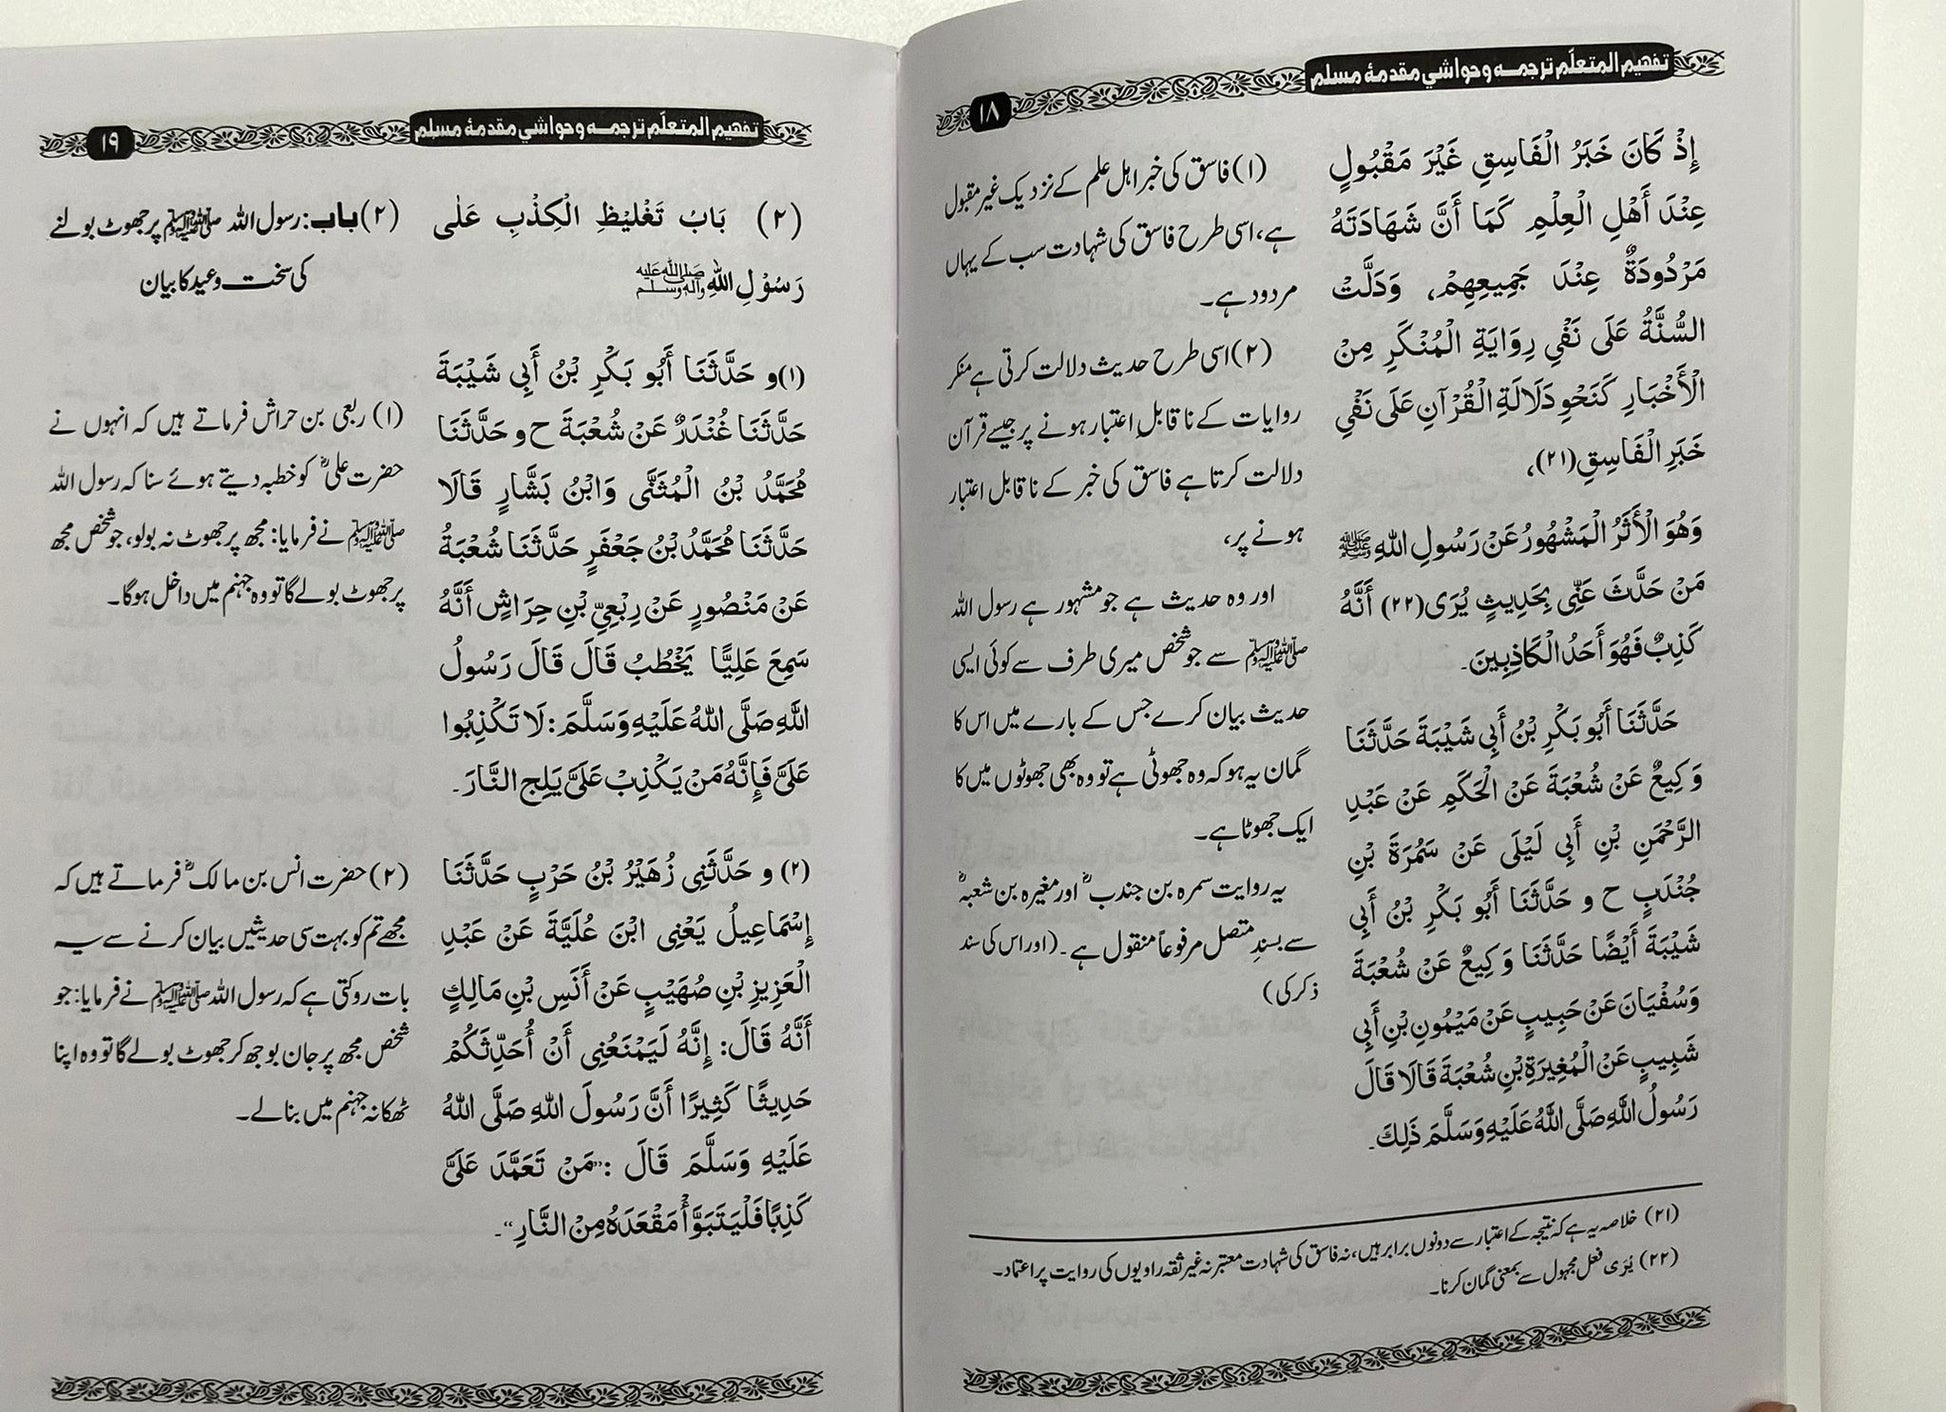 تفهيم المتعلّم ترجمہ و حواشي مقدمۂ مسلم
۱۸
إِذْ كَانَ خَبَرُ الْفَاسِقِ غَيْرَ مَقْبُولٍ
عِنْدَ أَهْلِ الْعِلْمِ كَمَا أَنَّ شَهَادَتَهُ
مَرْدُودَةٌ عِنْدَ جَمِيعِهِمْ، وَدَلَّتْ
السُّنَّةُ عَلَى نَفْيِ رِوَايَةِ الْمُنْكَرِ مِنْ
الْأَخْبَارِ كَنَحْوِ دَلَالَةِ الْقُرْآنِ عَلَى نَفْيِ
خَبَرِ الْفَاسِقِ(۲۱)،
وَهُوَ الْأَثَرُ الْمَشْهُورُ عَنْ رَسُولِ اللهِ ﷺ
مَنْ حَدَّثَ عَنِّي بِحَدِيثٍ يُرَى(۲۲) أَنَّهُ
كَذِبٌ فَهُوَ أَحَدُ الْكَاذِبِينَ۔
حَدَّثَنَا أَبُو بَكْرِ بْنُ أَبِي شَيْبَةَ حَدَّثَنَا
وَكِيعٌ عَنْ شُعْبَةَ عَنْ الْحَكَمِ عَنْ عَبْدِ
الرَّحْمَنِ بْنِ أَبِي لَيْلَى عَنْ سَمُرَةَ بْنِ
جُنْدَبٍ ح و حَدَّثَنَا أَبُو بَكْرِ بْنُ أَبِي
شَيْبَةَ أَيْضًا حَدَّثَنَا وَكِيعٌ عَنْ شُعْبَةَ
وَسُفْيَانَ عَنْ حَبِيبٍ عَنْ مَيْمُونِ بْنِ أَبِي
شَبِيبٍ عَنْ الْمُغِيرَةِ بْنِ شُعْبَةَ قَالَا قَالَ
رَسُولُ اللَّهِ صَلَّى اللَّهُ عَلَيْهِ وَسَلَّمَ ذَلِكَ۔
(۱) فاسق کی خبر اہل علم کے نزدیک غیر مقبول
ہے، اسی طرح فاسق کی شہادت سب کے یہاں
مردود ہے۔
(۲) اسی طرح حدیث دلالت کرتی ہے منکر
روایات کے ناقابلِ اعتبار ہونے پر جیسے قرآن
دلالت کرتا ہے فاسق کی خبر کے ناقابل اعتبار
ہونے پر،
اور وہ حدیث ہے جو مشہور ہے رسول اللہ
ﷺ سے جو شخص میری طرف سے کوئی ایسی
حدیث بیان کرے جس کے بارے میں اس کا
گمان یہ ہو کہ وہ جھوٹی ہے تو وہ بھی جھوٹوں میں کا
ایک جھوٹا ہے۔
یہ روایت سمرہ بن جندبؓ اور مغیرہ بن شعبہؓ
سے بسندِ متصل مرفوعاً منقول ہے۔(اور اس کی سند
ذکر کی)
(۲۱) خلاصہ یہ ہے کہ نتیجہ کے اعتبار سے دونوں برابر ہیں، نہ فاسق کی شہادت معتبر نہ غیر ثقہ راویوں کی روایت پر اعتماد۔
(۲۲) يُرَى فعل مجہول سے بمعنی گمان کرنا۔
تفهيم المتعلّم ترجمہ و حواشي مقدمۂ مسلم
۱۹
(۲) بَابُ تَغْلِيْظِ الْكِذْبِ عَلٰى
رَسُوْلِ اللهِ ﷺ
(۱)و حَدَّثَنَا أَبُو بَكْرِ بْنُ أَبِي شَيْبَةَ
حَدَّثَنَا غُنْدَرٌ عَنْ شُعْبَةَ ح و حَدَّثَنَا
مُحَمَّدُ بْنُ الْمُثَنَّى وَابْنُ بَشَّارٍ قَالَا
حَدَّثَنَا مُحَمَّدُ بْنُ جَعْفَرٍ حَدَّثَنَا شُعْبَةُ
عَنْ مَنْصُورٍ عَنْ رِبْعِيِّ بْنِ حِرَاشٍ أَنَّهُ
سَمِعَ عَلِيًّا يَخْطُبُ قَالَ قَالَ رَسُولُ
اللَّهِ صَلَّى اللَّهُ عَلَيْهِ وَسَلَّمَ: لَا تَكْذِبُوا
عَلَيَّ فَإِنَّهُ مَنْ يَكْذِبْ عَلَيَّ يَلِجِ النَّارَ۔
(۲) و حَدَّثَنِي زُهَيْرُ بْنُ حَرْبٍ حَدَّثَنَا
إِسْمَاعِيلُ يَعْنِي ابْنَ عُلَيَّةَ عَنْ عَبْدِ
الْعَزِيزِ بْنِ صُهَيْبٍ عَنْ أَنَسِ بْنِ مَالِكٍ
أَنَّهُ قَالَ: إِنَّهُ لَيَمْنَعُنِي أَنْ أُحَدِّثَكُمْ
حَدِيثًا كَثِيرًا أَنَّ رَسُولَ اللهِ صَلَّى اللهُ
عَلَيْهِ وَسَلَّمَ قَالَ :”مَنْ تَعَمَّدَ عَلَيَّ
كَذِبًا فَلْيَتَبَوَّأْ مَقْعَدَهُ مِنْ النَّارِ“۔
(۲)باب: رسول اللہ ﷺ پر جھوٹ بولنے
کی سخت وعید کا بیان
(۱) ربعی بن حراش فرماتے ہیں کہ انہوں نے
حضرت علیؓ کو خطبہ دیتے ہوئے سنا کہ رسول اللہ
ﷺ نے فرمایا: مجھ پر جھوٹ نہ بولو، جو شخص مجھ
پر جھوٹ بولے گا تو وہ جہنم میں داخل ہوگا۔
(۲) حضرت انس بن مالکؓ فرماتے ہیں کہ
مجھے تم کو بہت سی حدیثیں بیان کرنے سے یہ
بات روکتی ہے کہ رسول اللہ ﷺ نے فرمایا: جو
شخص مجھ پر جان بوجھ کر جھوٹ بولے گا تو وہ اپنا
ٹھکانہ جہنم میں بنالے۔